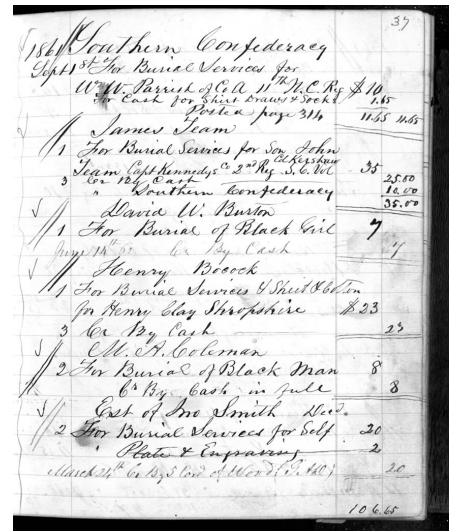 37
1861 Southern Confederacy
Sept 1st For Burial Services for
W. W. Parrish of Co A 11th N.C. Reg $10
For Cash for Shirt Draws & Socks 1.65
Posted page 314 11.65 11.65
James Team
1 For Burial Services for Son John
Team Capt Kennedys Co 2nd Reg S.C. Vol Col Kershaw 35
3 Cr By Cash 25.00
" Southern Confederacy 10.00
35.00
David W. Burton
1 For Burial of Black Girl 7
June 14th Cr By Cash 7
Henry Bocock
1 For Burial Services & Sheet & Cotton
for Henry Clay Shropshire $23
3 Cr By Cash 23
M. A. Coleman
2 For Burial of Black Man 8
Cr By Cash in full 8
Est of Jno Smith Decd
2 For Burial Services for Self 20
" Plate & Engraving 2
March 24th Cr By 5 Cord of Wood 20
106.65